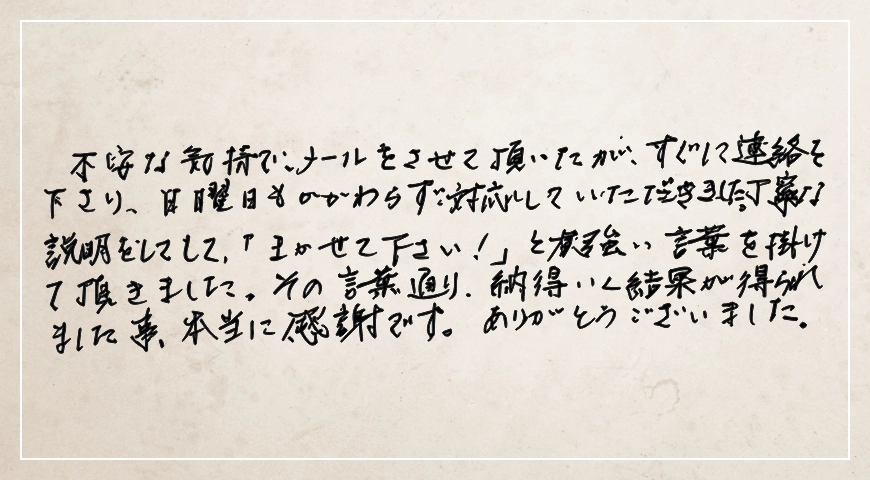 不安な気持で、メールをさせて頂いたが、すぐに連絡を
下さり、日曜日もかかわらず対応していただきました。丁寧な
説明をしてもして、「まかせて下さい!」と力強い言葉を掛け
て頂きました。その言葉通り、納得いく結果が得られ
ました事、本当に感謝です。ありがとうございました。